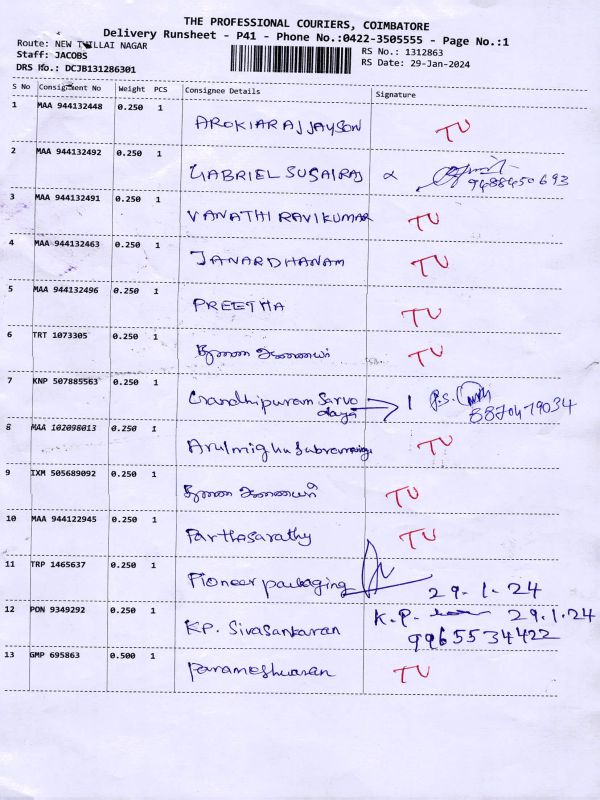 THE PROFESSIONAL COURIERS, COIMBATORE
Delivery Runsheet - P41 - Phone No.:0422-3505555 - Page No.:1
Route: NEW THILLAI NAGAR
Staff: JACOBS
DRS No.: DCJB131286301
RS No.: 1312863
RS Date: 29-Jan-2024
S No Consignment No Weight PCS Consignee Details Signature
1 MAA 944132448 0.250 1 AROKIARAJ JAYSON TU
2 MAA 944132492 0.250 1 GABRIEL SUSAIRAJ
9488450693
3 MAA 944132491 0.250 1 VANATHI RAVIKUMAR TU
4 MAA 944132463 0.250 1 JANARDHANAM TU
5 MAA 944132496 0.250 1 PREETHA TU
6 TRT 1073305 0.250 1 TU
7 KNP 507885563 0.250 1 Gandhipuram Sarvo
daya
8870479034
8 MAA 102098013 0.250 1 Arulmighu TU
9 IXM 505689092 0.250 1 TU
10 MAA 944122945 0.250 1 Parthasarathy TU
11 TRP 1465637 0.250 1 Pioneer packaging 29-1-24
12 PON 9349292 0.250 1 KP. Sivasankaran K.P. 29.1.24
9965534422
13 GMP 695863 0.500 1 Parameshwaran TU